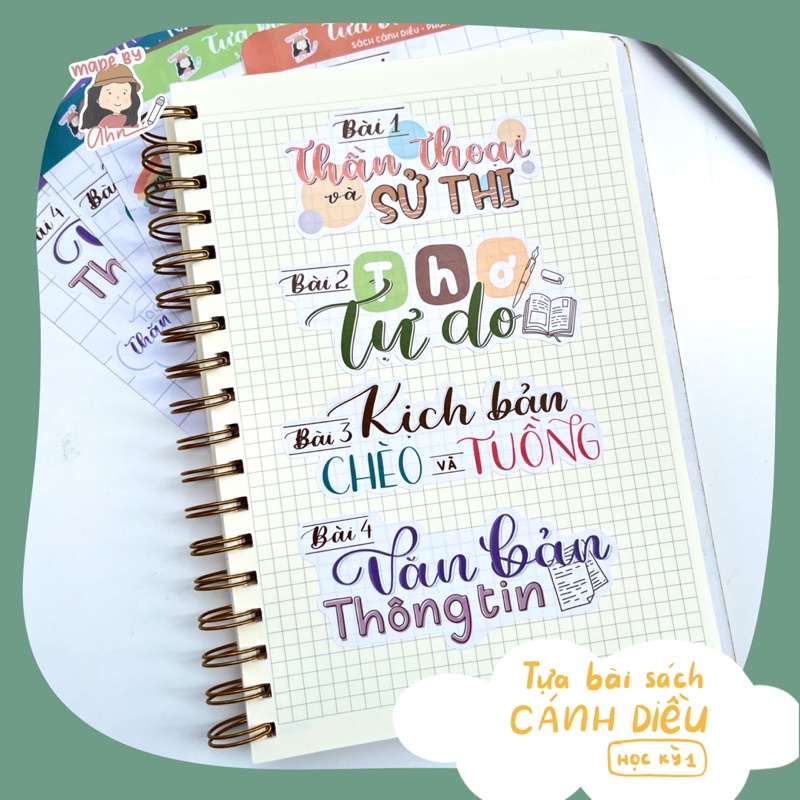 MADE BY
ahn
Tựa
SÁCH CÁNH DIỀU
Bài 1
Thần thoại
và
SỬ THI
Bài 2
Thơ
Tự do
Bài 3
Kịch bản
CHÈO VÀ TUỒNG
Bài 4
Văn bản
Thông tin
Bài 4
Thần
Tựa bài sách
CÁNH DIỀU
HỌC KỲ 1